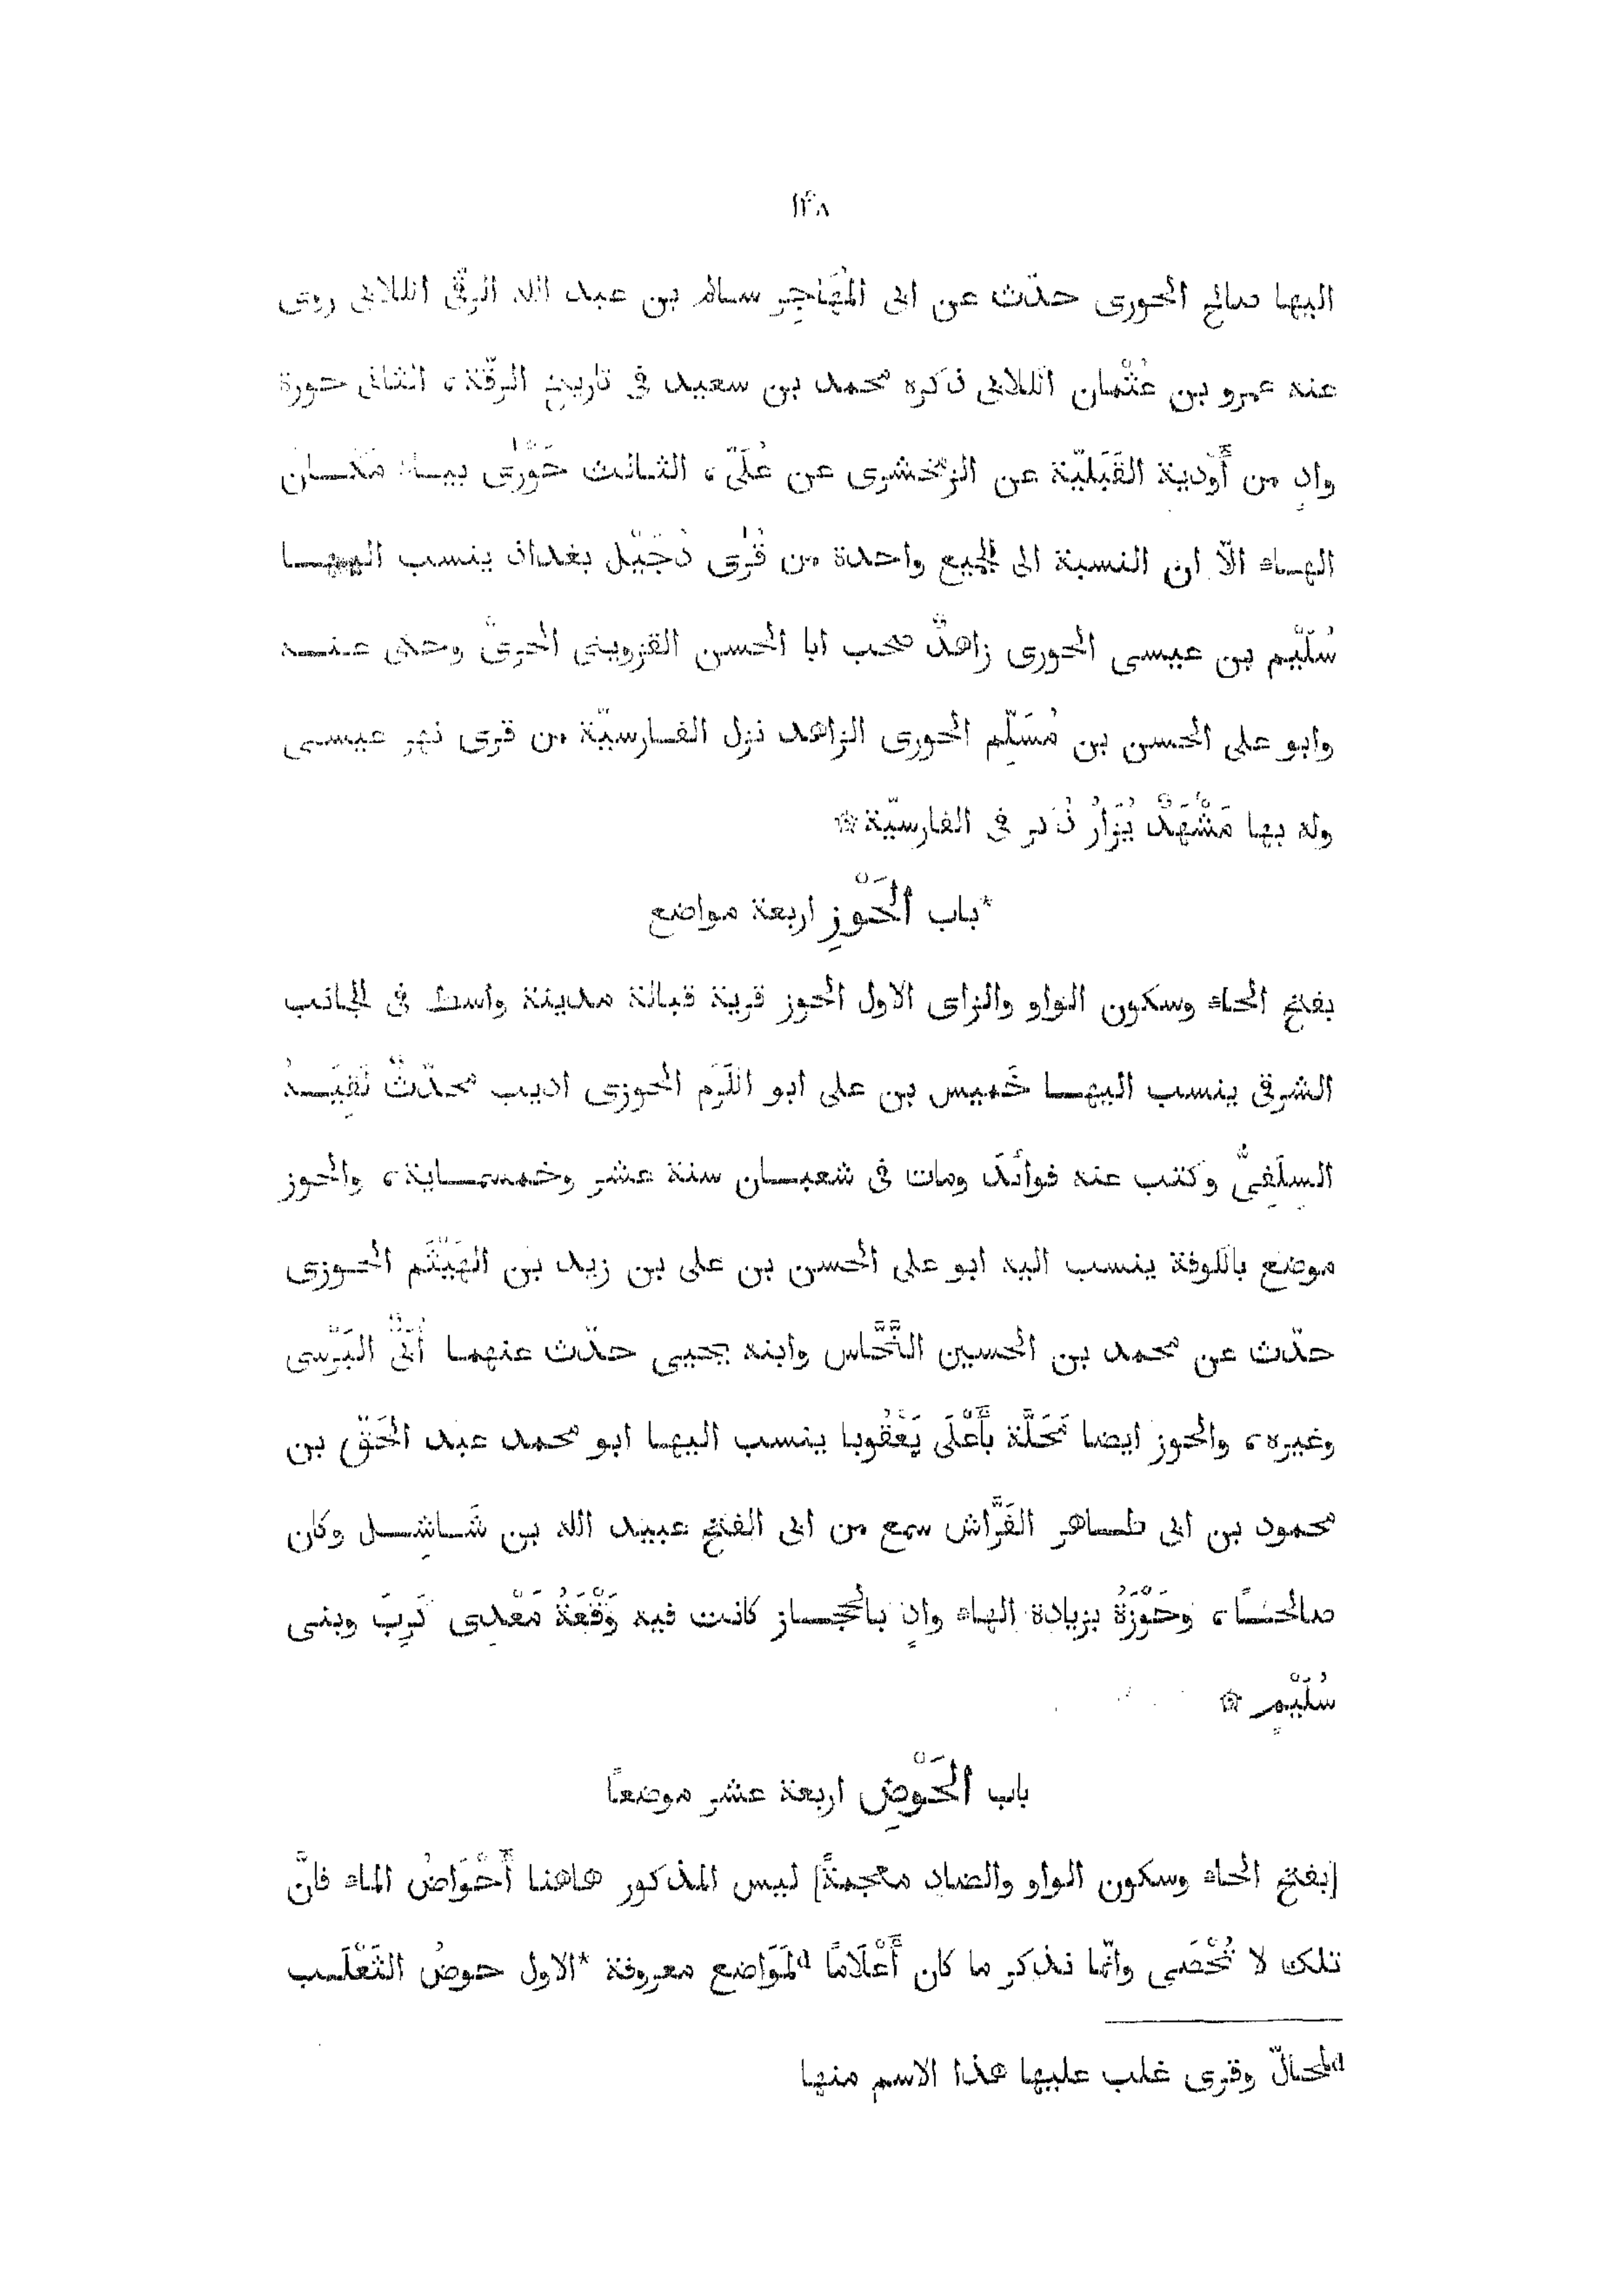 ١٤٨
اليها صالح الحورى حدّث عن ابى المُهَاجِر سالم بن عبد الله الرقّى الكلابى روى
عنه عمرو بن عُثْمان الكلابى ذكره محمد بن سعيد فى تاريخ الرقّة، الثانى حورة
وادٍ من أَوْدية القَبَليّة عن الزمخشرى عن عُلَىّ، الثالث حَوْرَى بياء مكان
الهاء الّا ان النسبة الى الجميع واحدة من قُرَى دُجَيْل بغداد ينسب اليها
سُلَيْم بن عيسى الحورى زاهدٌ صحب ابا الحسن القزوينى الحربىَّ وحكى عنه
وابو على الحسن بن مُسَلَّم الحورى الزاهد نزل الفارسيّة من قرى نهر عيسى
وله بها مَشْهَدٌ يُزَارُ ذُكر فى الفارسيّة ۞
*باب الْحَوْزِ اربعة مواضع
بفتح الحاء وسكون الواو والزاى الاول الحوز قرية قبالة مدينة واسط فى الجانب
الشرقى ينسب اليها خَميس بن على ابو الكَرَم الحوزى اديب محدّثٌ لَقِيَهُ
السِلَفِىُّ وكتب عنه فوائدَ ومات فى شعبان سنة عشر وخمسماية، والحوز
موضع بالكوفة ينسب اليه ابو على الحسن بن على بن زيد بن الهَيْثَم الحوزى
حدّث عن محمد بن الحسين النَّحَّاس وابنه يحيى حدّث عنهما أُبَىٌّ النَرْسى
وغيره، والحوز ايضا مَحَلَّة بأَعْلَى يَعْقُوبا ينسب اليها ابو محمد عبد الحَقّ بن
محمود بن ابى طاهر الفَرَّاش سمع من ابى الفتح عبيد الله بن شَاشِل وكان
صالحًا، وحَوْزَةُ بزيادة الهاء وادٍ بالحجاز كانت فيه وَقْعَةُ مَعْدِى كَرِبَ وبنى
سُلَيْمٍ ۞
باب الْحَوْضِ اربعة عشر موضعًا
[بفتح الحاء وسكون الواو والضاد معجمةً] ليس المذكور هاهنا أَحْوَاضُ الماء فانَّ
تلك لا تُحْصَى وانّما نذكر ما كان أَعْلَامًا d لمَوَاضع معروفة *الاول حوضُ الثَعْلَب
d لمحالّ وقرى غلب عليها هذا الاسم منها